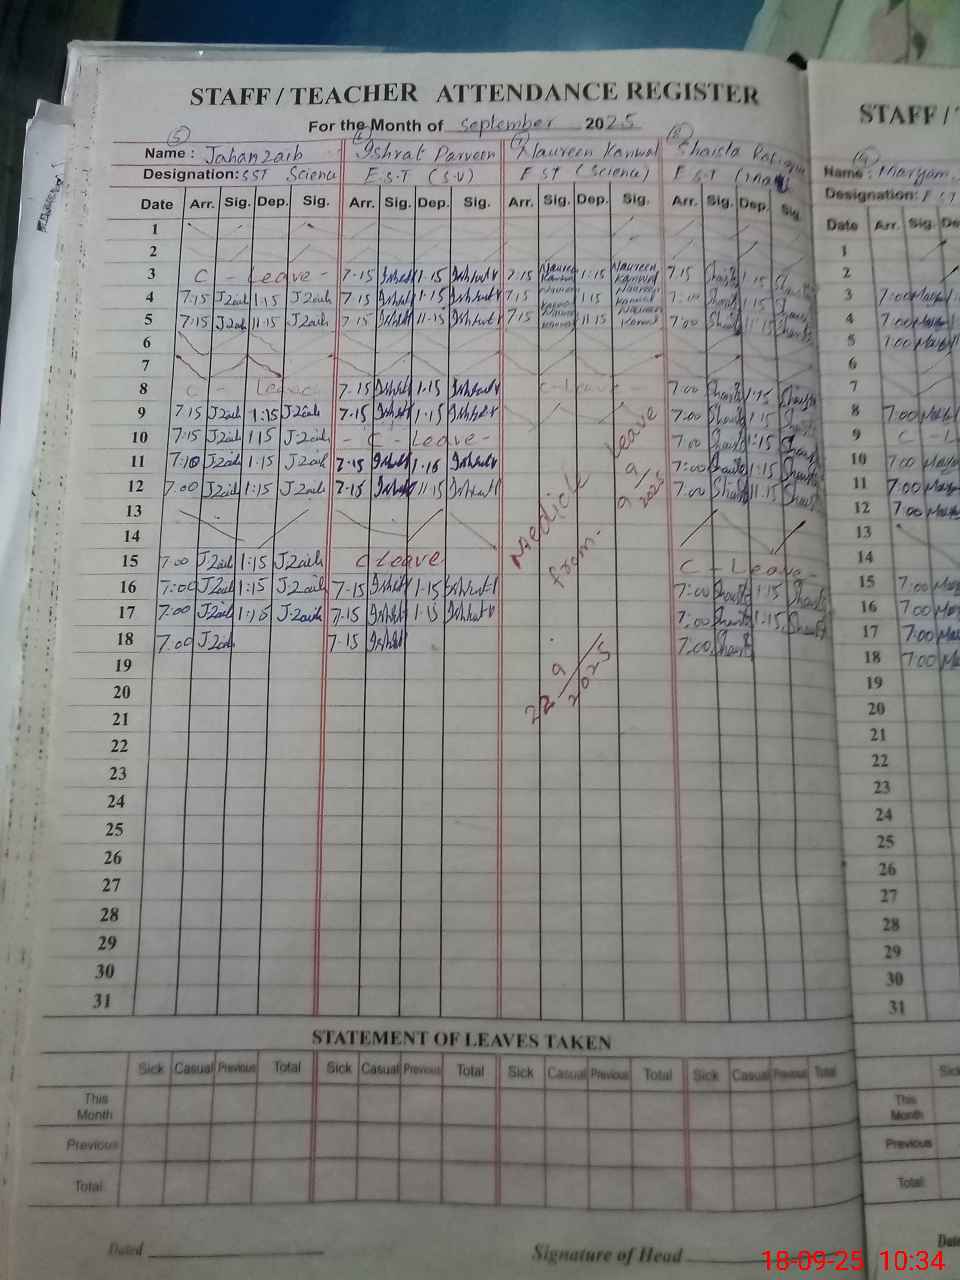 STAFF / TEACHER ATTENDANCE REGISTER
For the Month of September 2025
STAFF / T
(5) (6) (7) (8)
Name : Jahanzaib Ishrat Parveen Naureen Kanwal Shaista
Designation: SST Science E.S.T (S.V) EST (Science) E.S.T
Name : Maryam
Designation: EST
Date Arr. Sig. Dep. Sig. Arr. Sig. Dep. Sig. Arr. Sig. Dep. Sig. Arr. Sig. Dep. Sig.
Date Arr. Sig. De
1
2
3 C - Leave - 7-15 Ishrat 1-15 Ishrat 7:15 Naureen Kanwal 1:15 Naureen Kanwal 7:15 Shaista 1:15
4 7:15 Jzaib 1:15 Jzaib 7-15 Ishrat 1-15 Ishrat 7:15 1:15 Naureen Kanwal Shaista 1:15
5 7:15 Jzaib 11:15 Jzaib 7-15 Ishrat 11-15 Ishrat 7:15 11:15 Naureen Kanwal 7:00 Shaista 11:15
6
7
8 C - Leave 7-15 Ishrat 1-15 Ishrat C-Leave - 7:00 Shaista 1:15 Shaista
9 7:15 Jzaib 1:15 Jzaib 7-15 Ishrat 1-15 Ishrat 7:00 Shaista 1:15
10 7:15 Jzaib 1:15 Jzaib - C - Leave - 7:00 Shaista 1:15
11 7:10 Jzaib 1:15 Jzaib 7-15 Ishrat 1-15 Ishrat 7:00 Shaista 1:15
12 7:00 Jzaib 11:15 Jzaib 7-15 Ishrat 11-15 Ishrat 7:00 Shaista 11:15
13
14
15 7:00 Jzaib 1:15 Jzaib C Leave C - Leave -
16 7:00 Jzaib 1:15 Jzaib 7-15 Ishrat 1-15 Ishrat 7:00 Shaista 1:15
17 7:00 Jzaib 1:15 Jzaib 7-15 Ishrat 1-15 Ishrat 7:00 Shaista 1:15
18 7:00 Jzaib 7-15 Ishrat 7:00 Shaista
Medicle Leave
from - 9 9/2025
22 9/2025
19
20
21
22
23
24
25
26
27
28
29
30
31
1
2
3 7:00
4 7:00
5 7:00
6
7
8 7:00
9 C - L
10 7:00
11 7:00
12 7:00
13
14
15 7:00
16 7:00
17 7:00
18 7:00
19
20
21
22
23
24
25
26
27
28
29
30
31
STATEMENT OF LEAVES TAKEN
Sick Casual Previous Total Sick Casual Previous Total Sick Casual Previous Total Sick Casual Previous Total
This Month
Previous
Total
Sick
This Month
Previous
Total
Dated
Signature of Head
Date
18-09-25 10:34